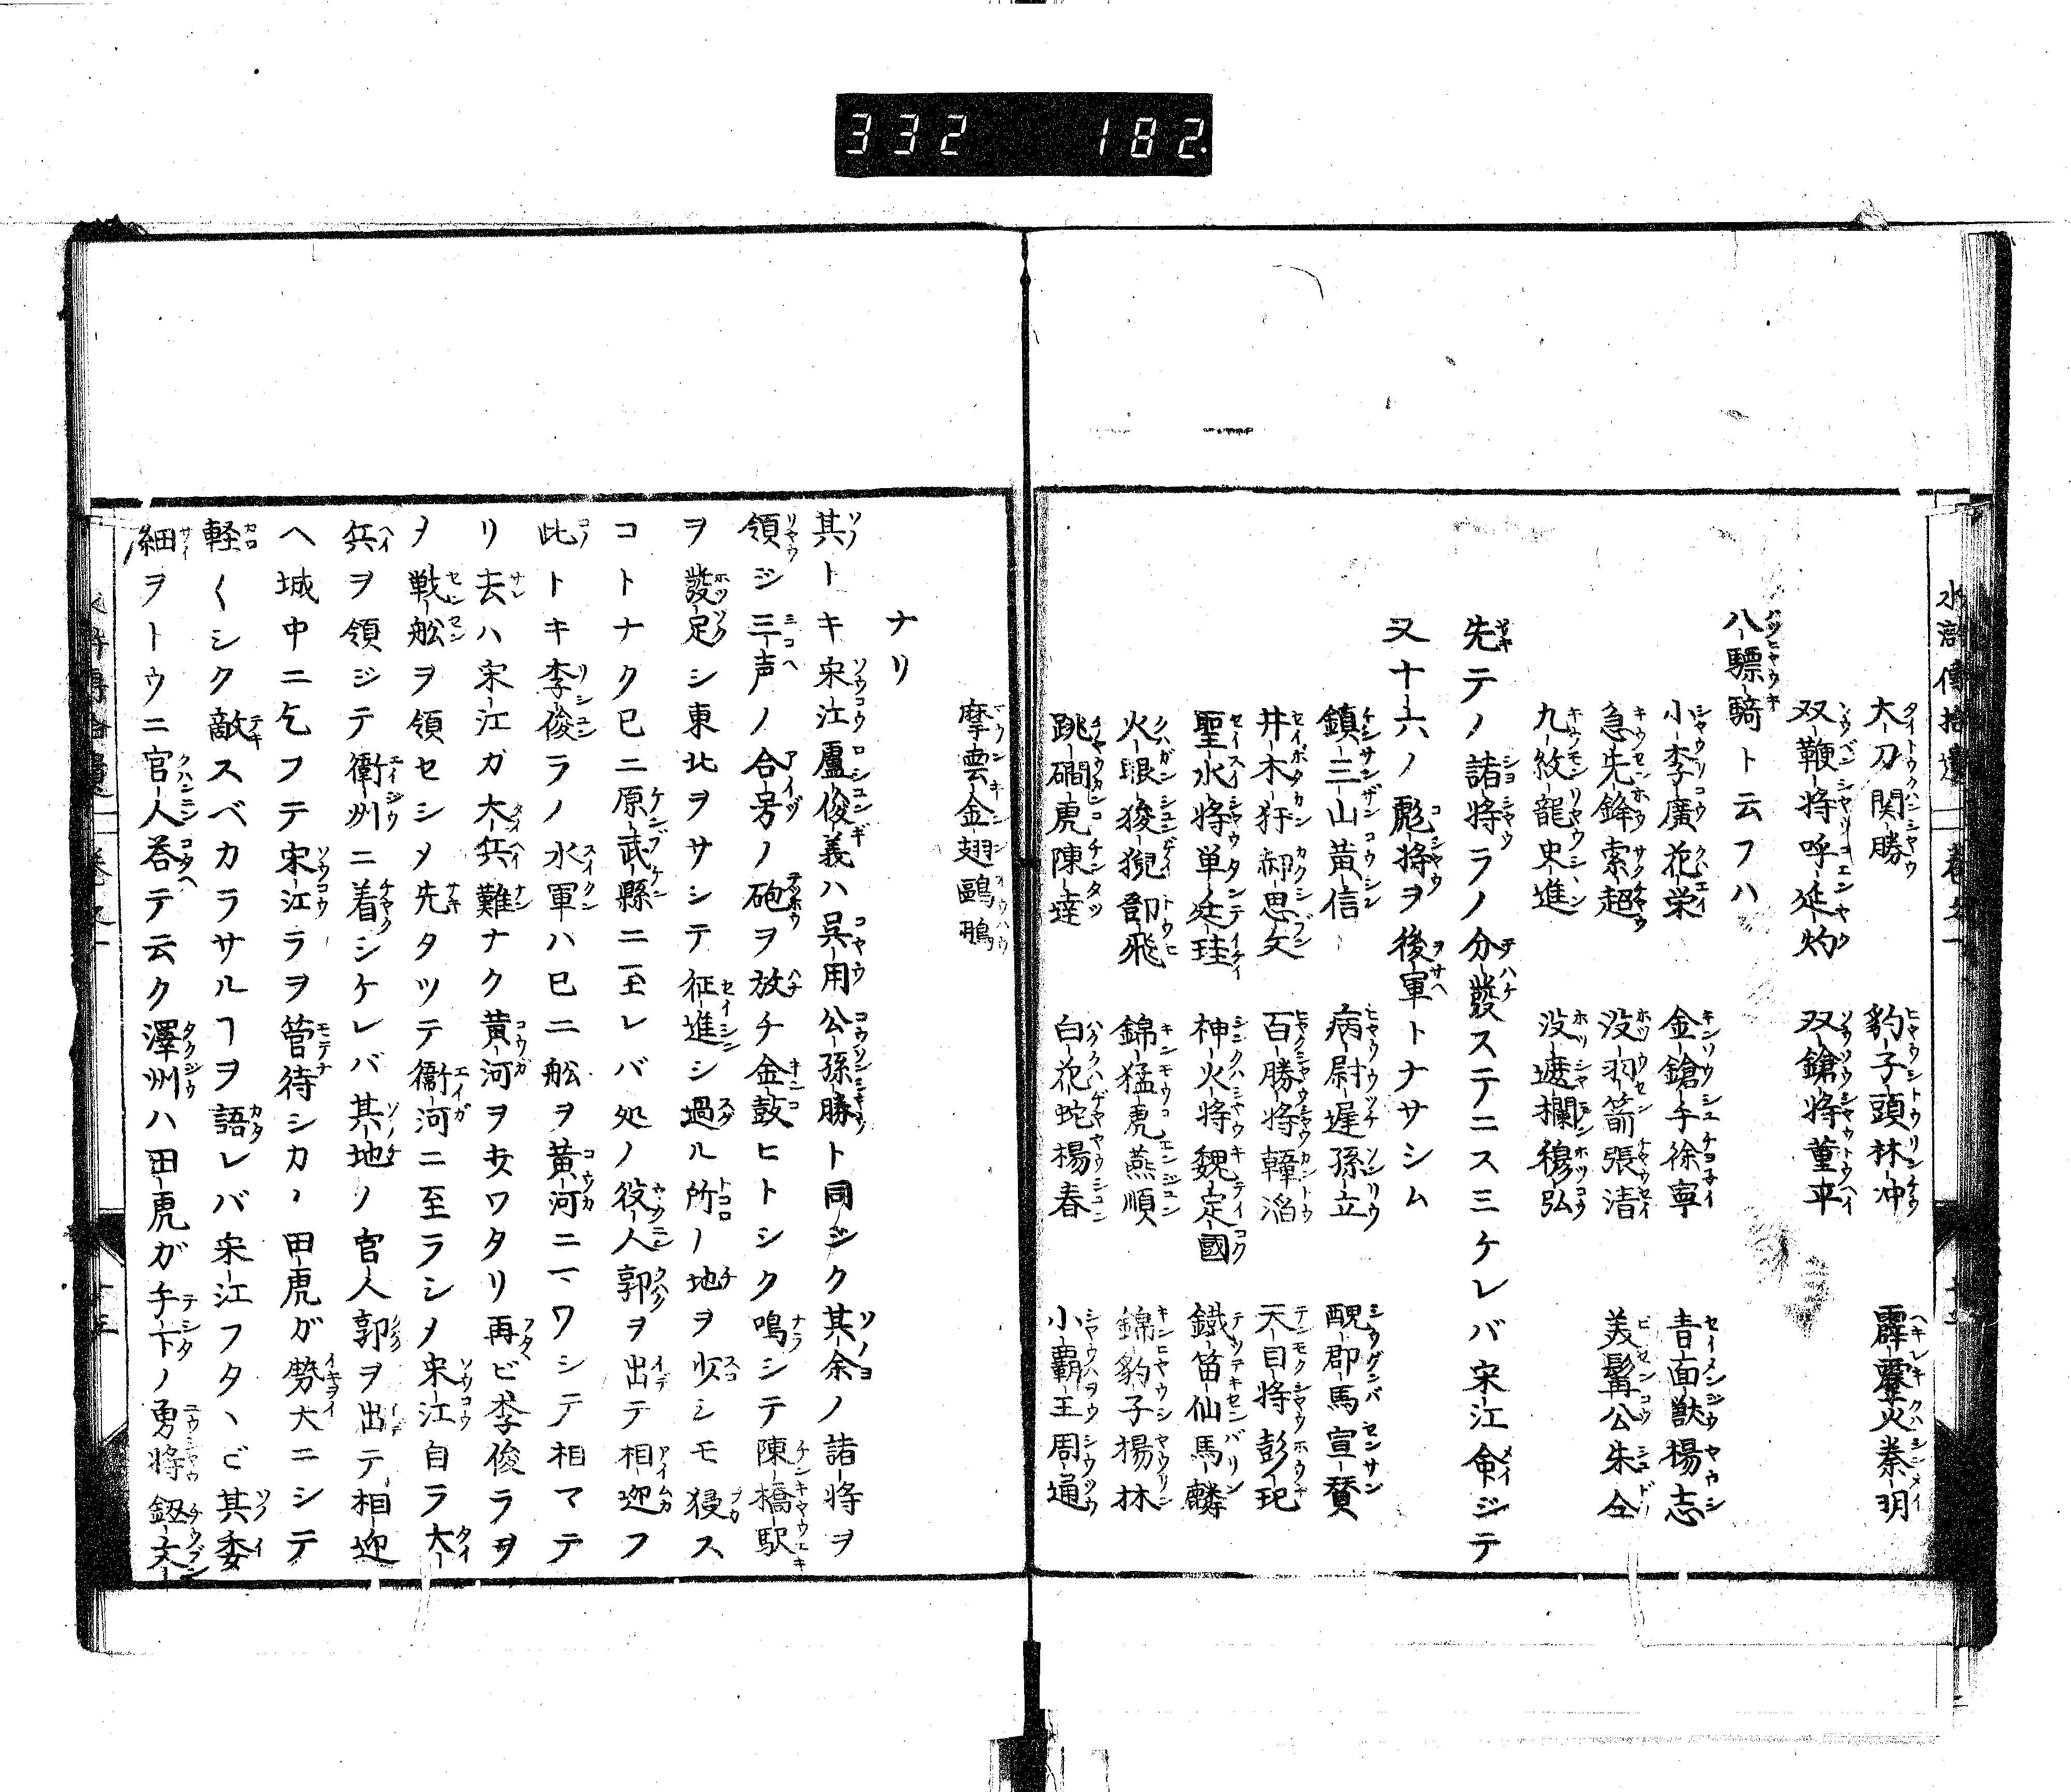 332 182
水滸傳拾遺 卷之一
大刀関勝 豹子頭林冲 霹靂火秦明
双鞭将呼延灼 双鎗将董平
八驃騎ト云フハ
小李廣花栄 金鎗手徐寧 青面獣楊志
急先鋒索超 没羽箭張清 美髯公朱仝
九紋龍史進 没遮欄穆弘
先テノ諸将ラノ分發ステニスミケレバ宋江命ジテ
又十六ノ彪将ヲ後軍トナサシム
鎮三山黄信 病尉遅孫立 醜郡馬宣賛
井木犴郝思文 百勝将韓滔 天目将彭玘
聖水将単廷珪 神火将魏定國 鐵笛仙馬麟
火眼狻猊鄧飛 錦猛虎燕順 錦豹子楊林
跳澗虎陳達 白花蛇楊春 小覇王周通
摩雲金翅鷗鵬
ナリ
其トキ宋江盧俊義ハ呉用公孫勝ト同シク其余ノ諸将ヲ
領ジ三声ノ合号ノ砲ヲ放チ金鼓ヒトシク鳴シテ陳橋駅
ヲ發足シ東北ヲサシテ征進シ過ル所ノ地ヲ少シモ侵ス
コトナク已ニ原武縣ニ至レバ処ノ役人郭ヲ出テ相迎フ
此トキ李俊ラノ水軍ハ已ニ舩ヲ黄河ニマワシテ相マテ
リ去ハ宋江ガ大兵難ナク黄河ヲ打ワタリ再ビ李俊ラヲ
〆戦舩ヲ領セシメ先タツテ衛河ニ至ラシメ宋江自ラ大
兵ヲ領ジテ衛州ニ着シケレバ其地ノ官人郭ヲ出テ相迎
ヘ城中ニ乞フテ宋江ラヲ管待シカヽ田虎ガ勢大ニシテ
軽〱シク敵スベカラサルヿヲ語レバ宋江フタヽビ其委
細ヲトウニ官人荅テ云ク澤州ハ田虎ガ手下ノ勇将鈕文